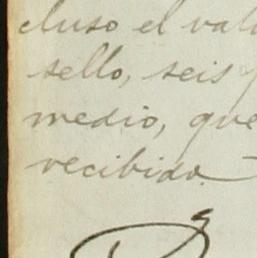 cluso el valo
sello, seis y
medio, que
recibido.